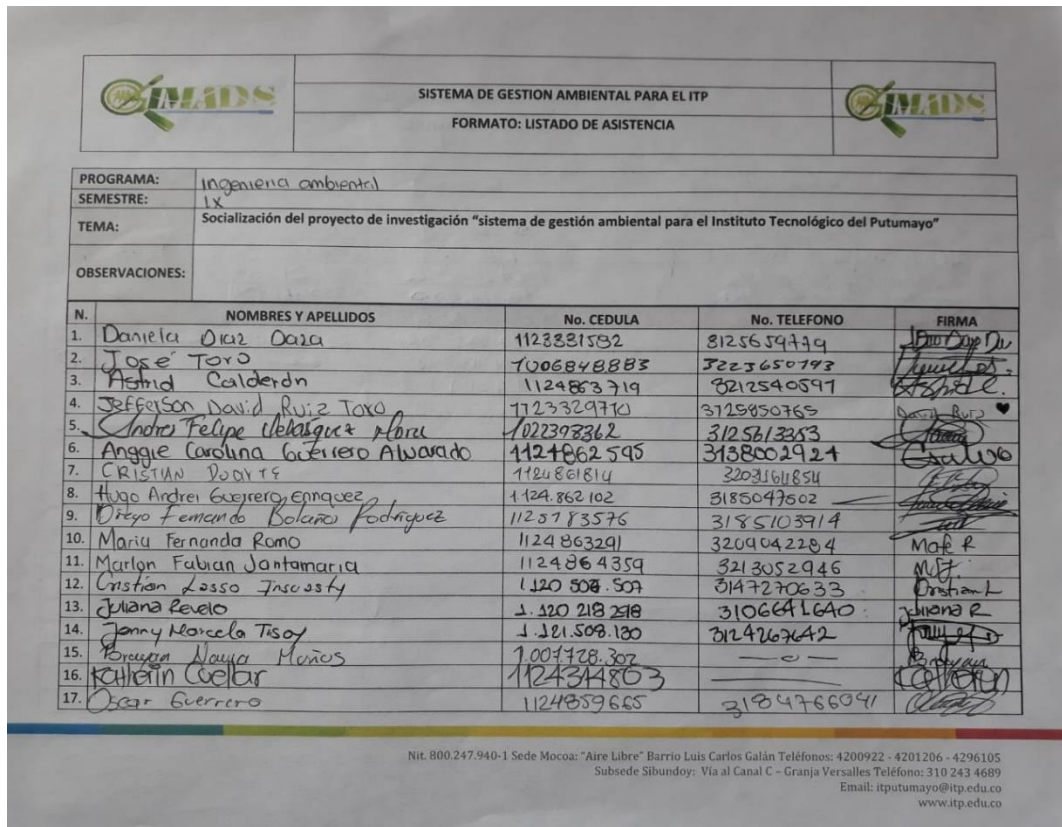 GIMADS
SISTEMA DE GESTION AMBIENTAL PARA EL ITP
FORMATO: LISTADO DE ASISTENCIA
GIMADS
PROGRAMA: Ingenieria ambiental
SEMESTRE: IX
TEMA: Socialización del proyecto de investigación "sistema de gestión ambiental para el Instituto Tecnológico del Putumayo"
OBSERVACIONES:
N. NOMBRES Y APELLIDOS No. CEDULA No. TELEFONO FIRMA
1. Daniela Diaz Daza 1123331592 3125659779
2. José Toro 1006848883 3223650793
3. Astrid Calderón 1124863719 3212540597
4. Jefferson David Ruiz Toro 1123329710 3125850765 David Ruiz
5. Andres Felipe Velasquez Mora 1022398362 3125613353
6. Anggie Carolina Guerrero Alvarado 1124862595 3138002924
7. CRISTIAN DUARTE 1124861814
8. Hugo Andrei Guerrero Enriquez 1.124.862 102 3185047502
9. Diego Fernando Bolaños Rodriguez 1125183576 3185103914
10. Maria Fernanda Romo 1124863291 3209042284 Mafe R
11. Marlon Fabian Santamaria 1124864359 3213052946
12. Cristian Lasso 1.120 508.507 3147270633 Cristian L
13. Juliana Revelo 1.120 218 298 3106641640 Juliana R
14. Jenny Marcela Tisoy 1.121.508.130 3124267642
15. Brayan Muños 1.007.728.302 Brayan
16. Katherin Cuellar 1124314803 Katherin
17. Oscar Guerrero 1124859665 3184766041
Nit. 800.247.940-1 Sede Mocoa: "Aire Libre" Barrio Luis Carlos Galán Teléfonos: 4200922 - 4201206 - 4296105
Subsede Sibundoy: Vía al Canal C – Granja Versalles Teléfono: 310 243 4689
Email: itputumayo@itp.edu.co
www.itp.edu.co